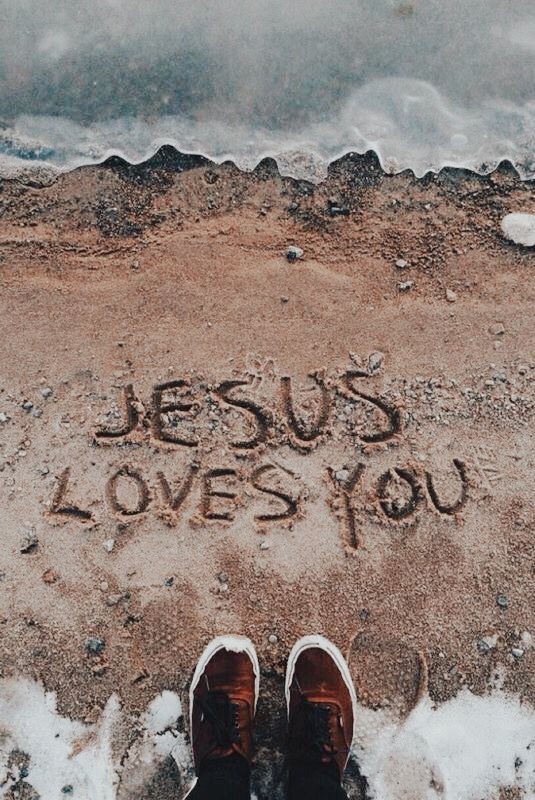 JESUS
LOVES YOU